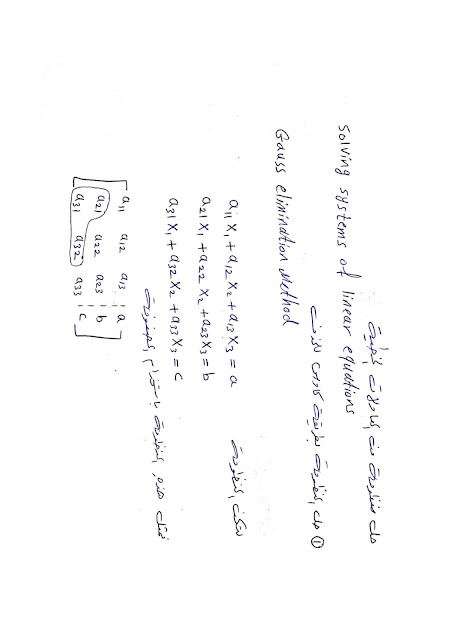 حل منظومة من المعادلات الخطية
Solving systems of linear equations
① حل المنظومة بطريقة كاوس
Gauss elimination Method
لتكن المنظومة
a11 x1 + a12 x2 + a13 x3 = a
a21 x1 + a22 x2 + a23 x3 = b
a31 x1 + a32 x2 + a33 x3 = c
تمثل هذه المنظومة باستخدام المصفوفة
a11 a12 a13 a
a21 a22 a23 b
a31 a32 a33 c